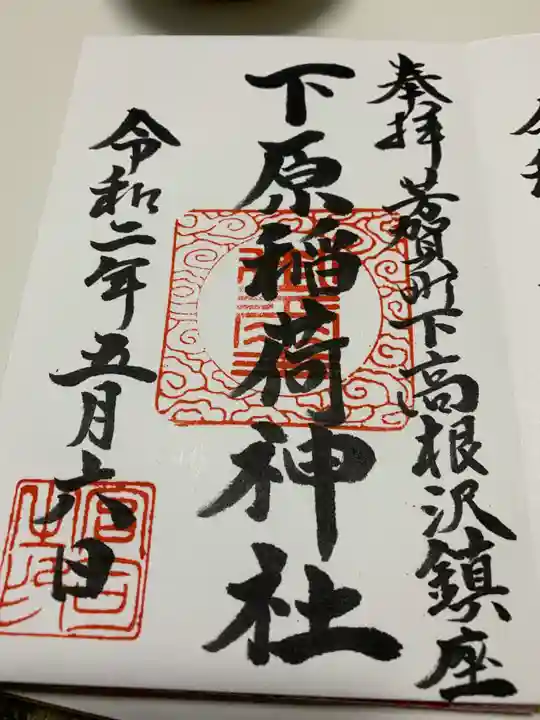 奉拝 芳賀町下高根沢鎮座
下原稲荷神社
令和二年五月六日